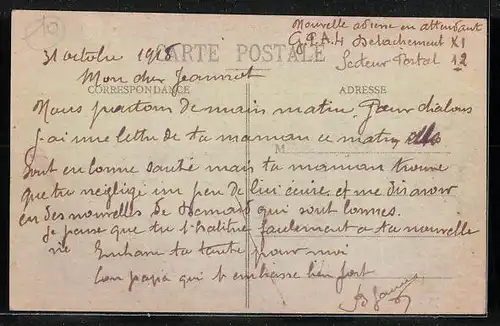 Nouvelle adresse en attendant
G.P.A.4 Détachement XI
Secteur Postal 12
31 octobre 1918
CARTE POSTALE
Mon cher Jeannot
CORRESPONDANCE
ADRESSE
Nous partons demain matin. Pour
j'ai une lettre de ta maman ce matin elle
M
sont en bonne santé mais ta maman trouve
que tu néglige un peu de lui écrire et me dis avoir
eu des nouvelles de Bernard qui sont bonnes.
Je pense que tu t'habitue facilement a ta nouvelle
vie Embrasse ta tante pour moi
Ton papa qui t'embrasse bien fort